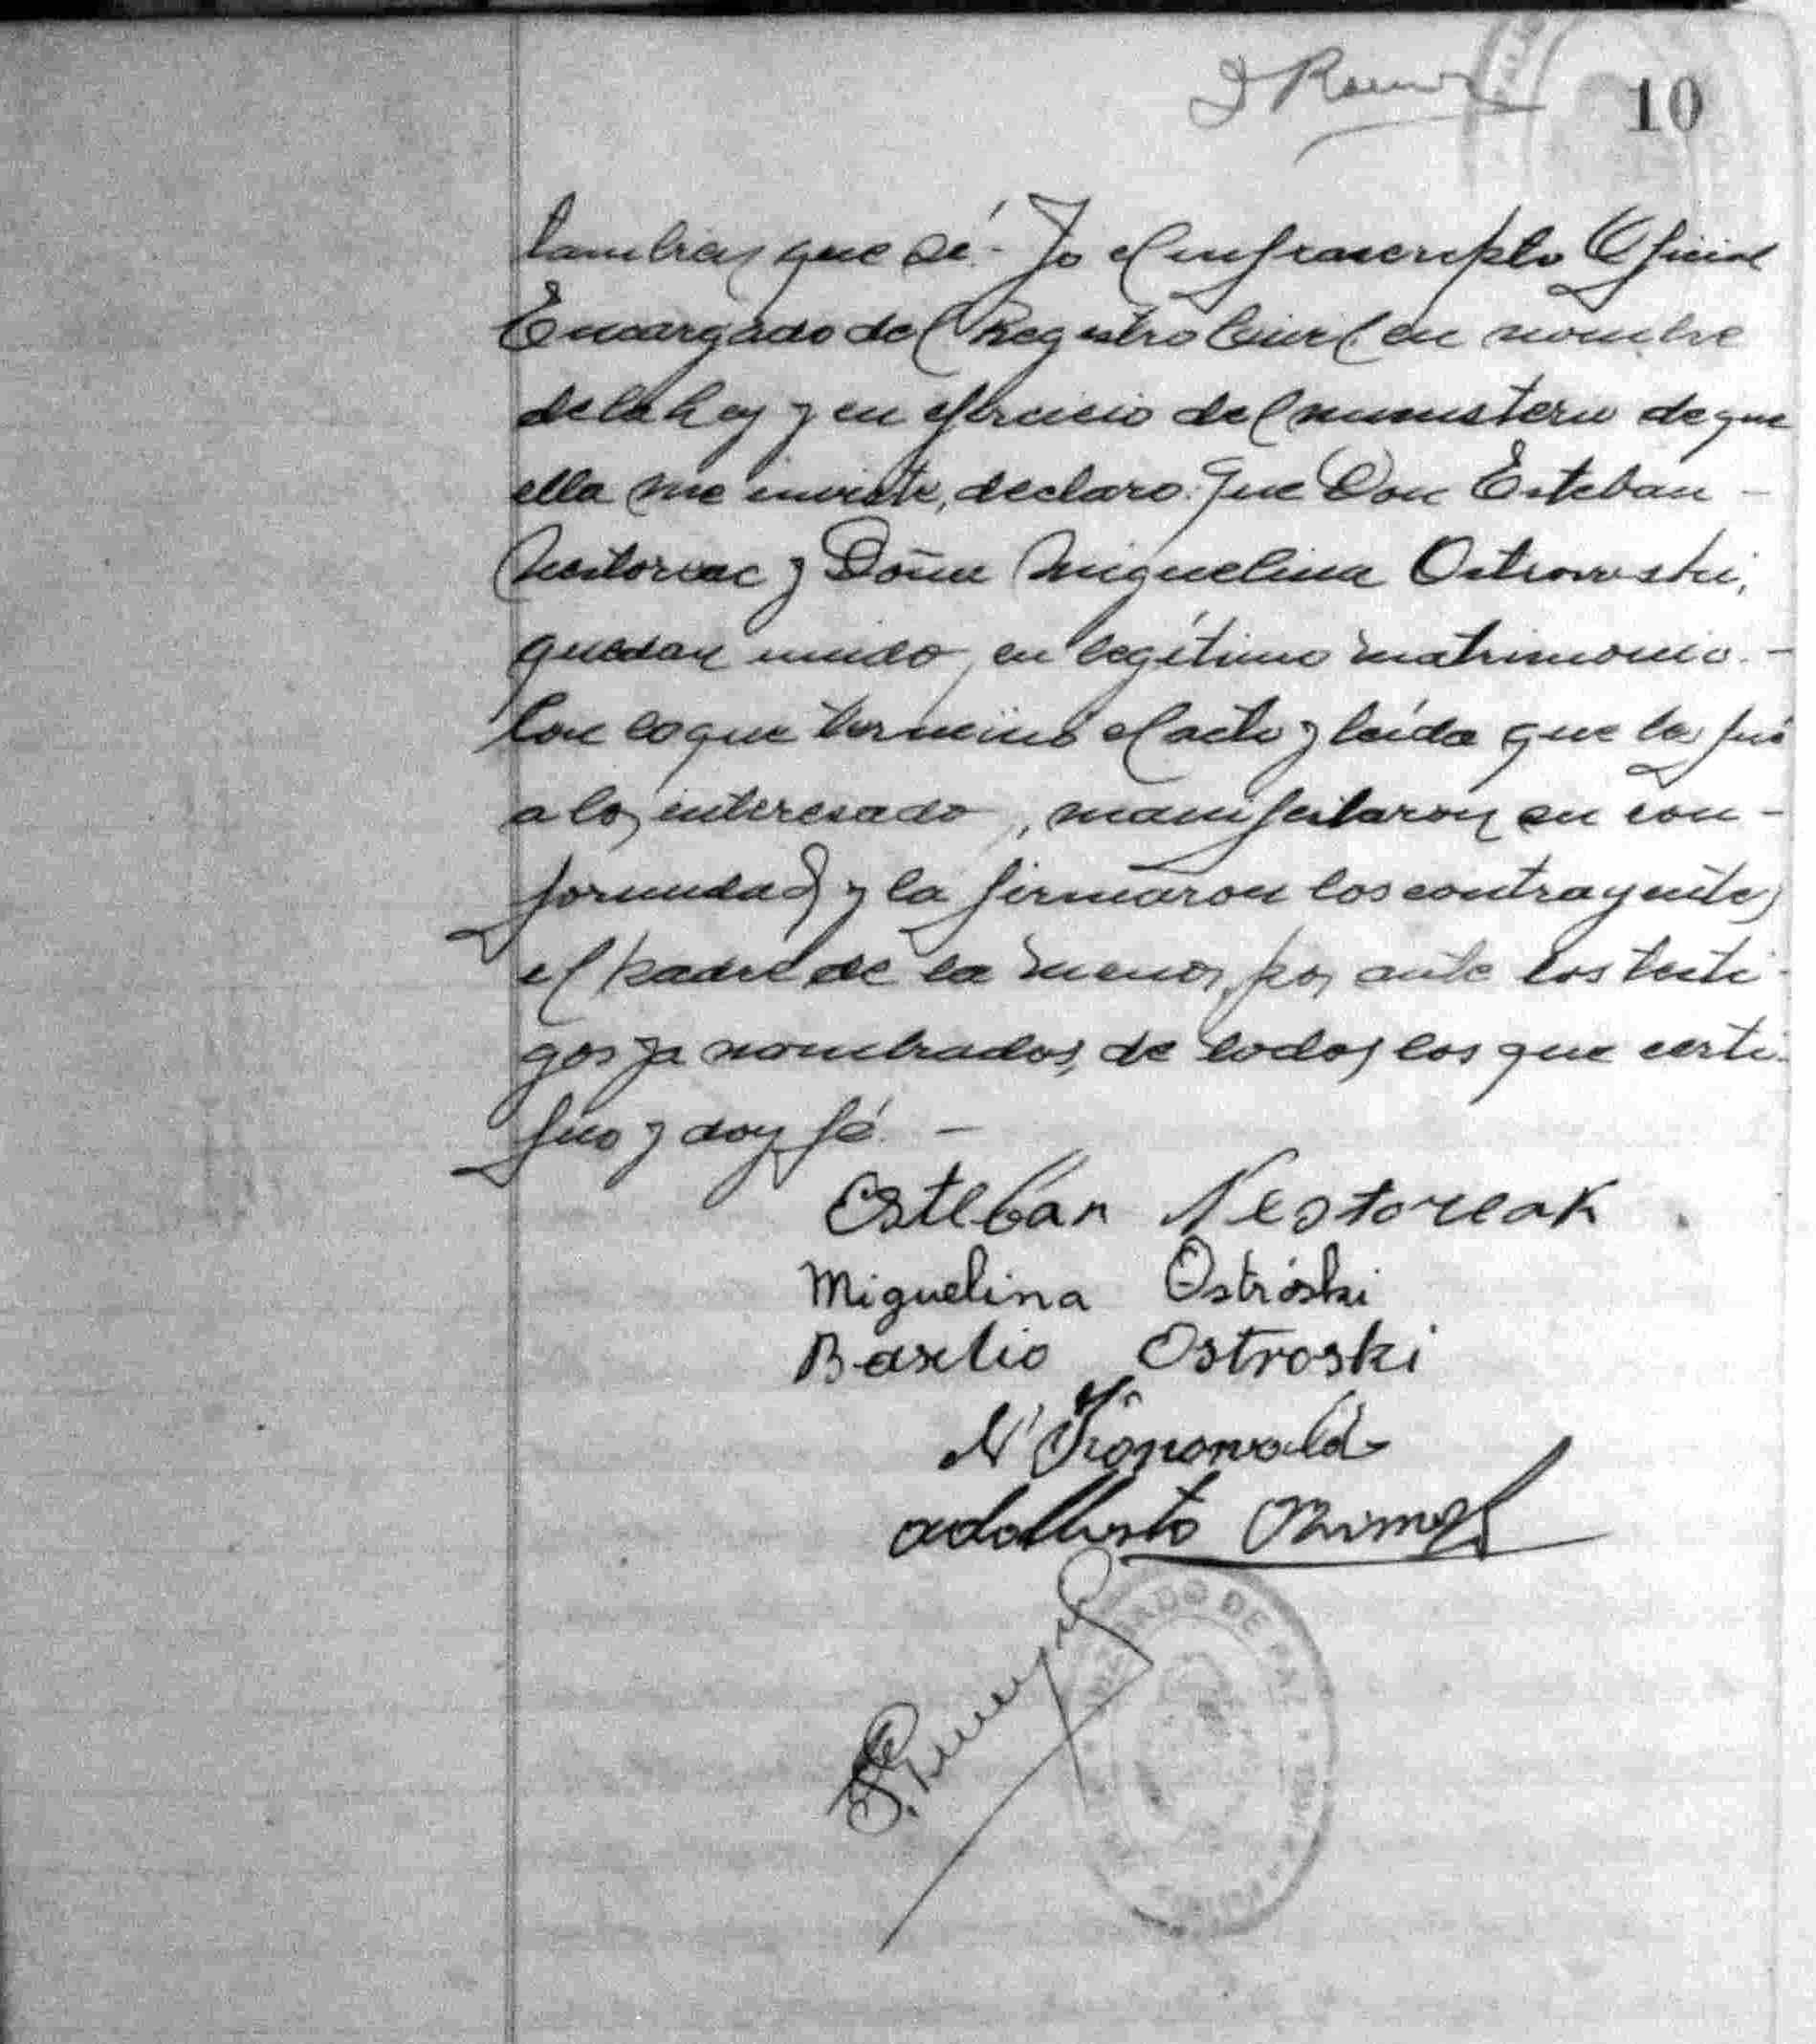 10
tambien que sé.- Yo el infrascripto Oficial
Encargado del Registro Civil en nombre
de la Ley y en ejercicio del ministerio de que
ella me inviste, declaro: que Don Esteban -
Nestoreac y Doña Miguelina Ostrowski,
quedan unidos en legítimo matrimonio. -
Con lo que terminó el acto y leída que les fué
a los interesados, manifestaron su con-
formidad y la firmaron los contrayentes
el padre de la menor, por ante los testi-
gos ya nombrados, de todos los que certi-
fico y doy fé. -
Esteban Nestoreak
Miguelina Ostróski
Basilio Ostroski
adalberto
JUZGADO DE PAZ